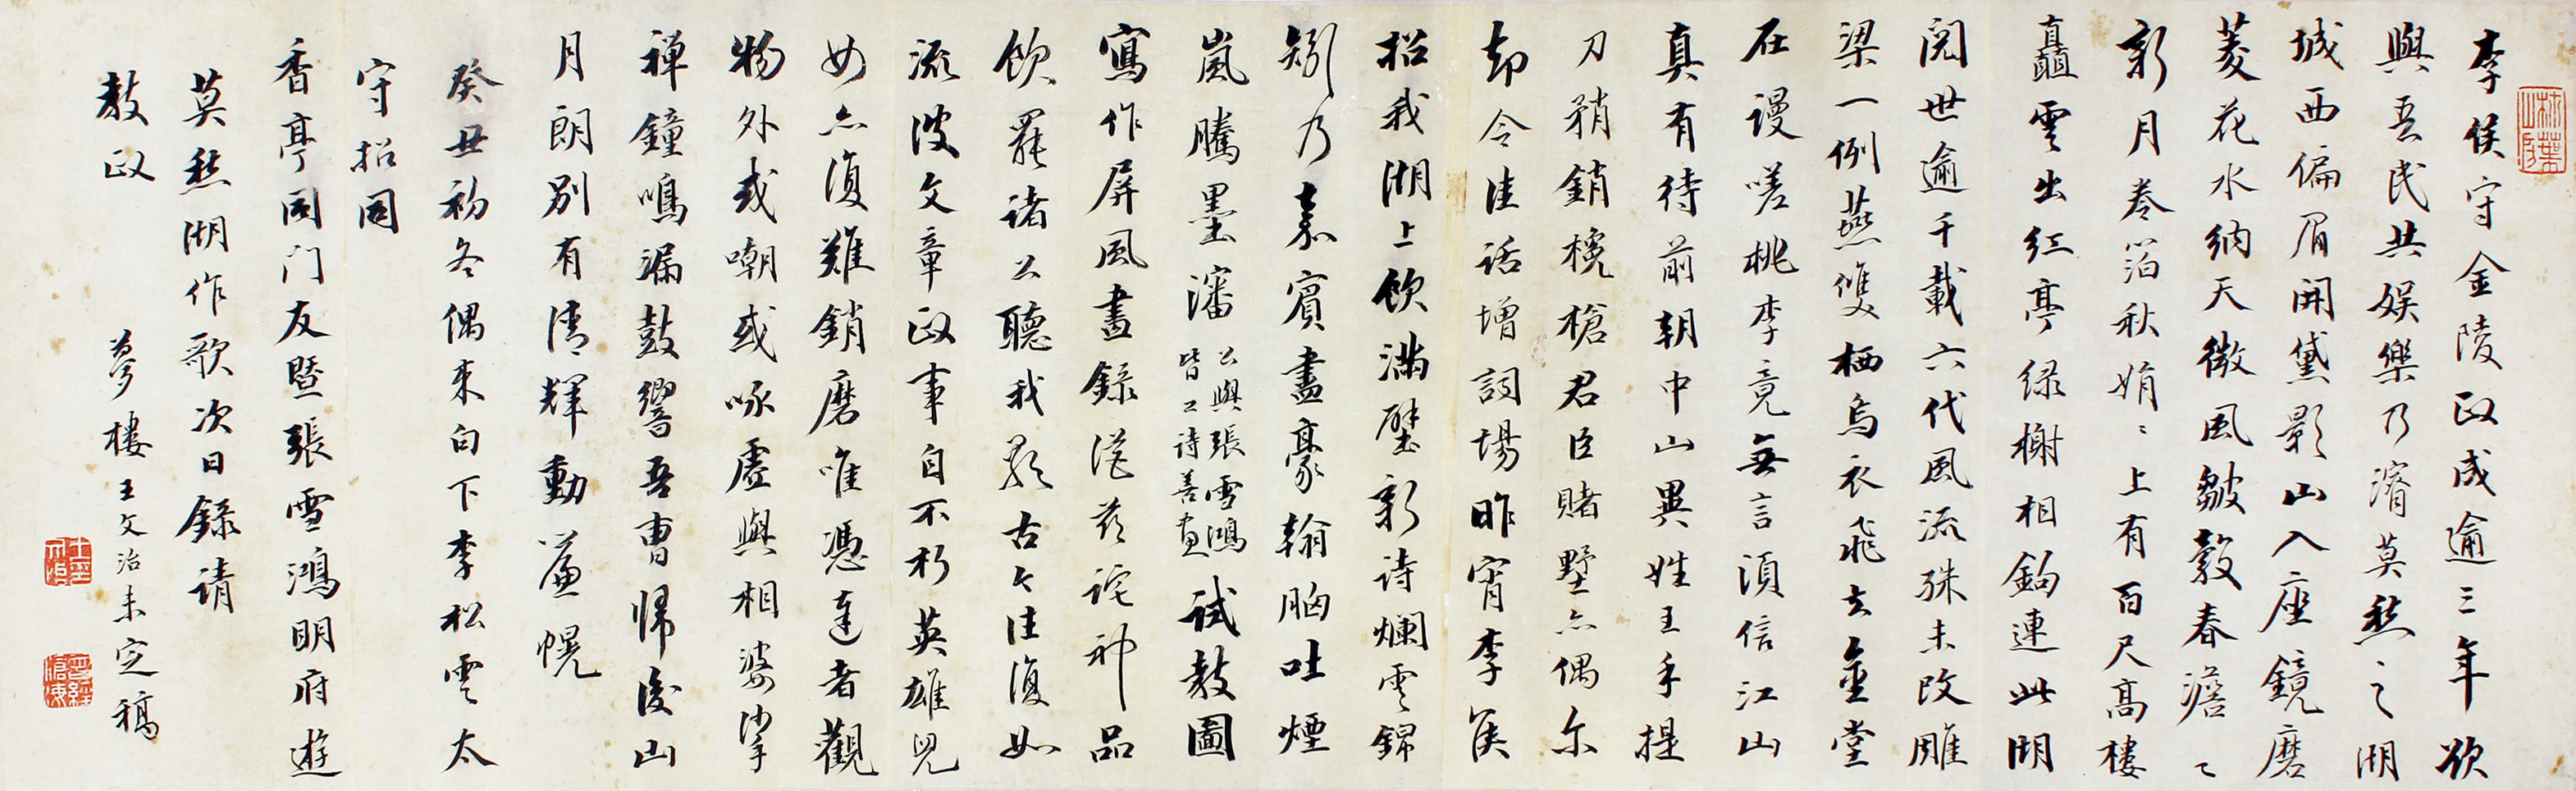 李侯守金陵政成逾三年欲
與吾民共娛樂乃濬莫愁之湖
城西偏眉開黛影山入座鏡磨
菱花水納天微風皺縠春澹〻
新月卷箔秋娟〻上有百尺高樓
矗雲出紅亭綠榭相鉤連此湖
閱世逾千載六代風流殊未改雕
梁一例燕雙栖烏衣飛去金堂
在謾嗟桃李竟無言須信江山
真有待前朝中山異姓王手提
刀矟銷欃槍君臣賭墅亦偶尔
却令佳話增詞場昨宵李侯
招我湖上飲滿壁新詩爛雲錦
矧乃嘉賓盡豪翰胸吐煙
嵐騰墨瀋
公與張雪鴻
皆工詩善畫
試教圖
寫作屏風畫錄從茲詫神品
飲罷諸公聽我歌古今往復如
流波文章政事自不朽英雄兒
女亦復難銷磨唯憑達者觀
物外或嘲或咏虛與相婆娑
禪鐘鳴漏鼓響吾曹歸後山
月朗別有清輝動簾幌
癸丑初冬偶來白下李松雲太
守招同
香亭同门友暨張雪鴻明府遊
莫愁湖作歌次日錄請
教政
夢樓王文治未定稿
王文治